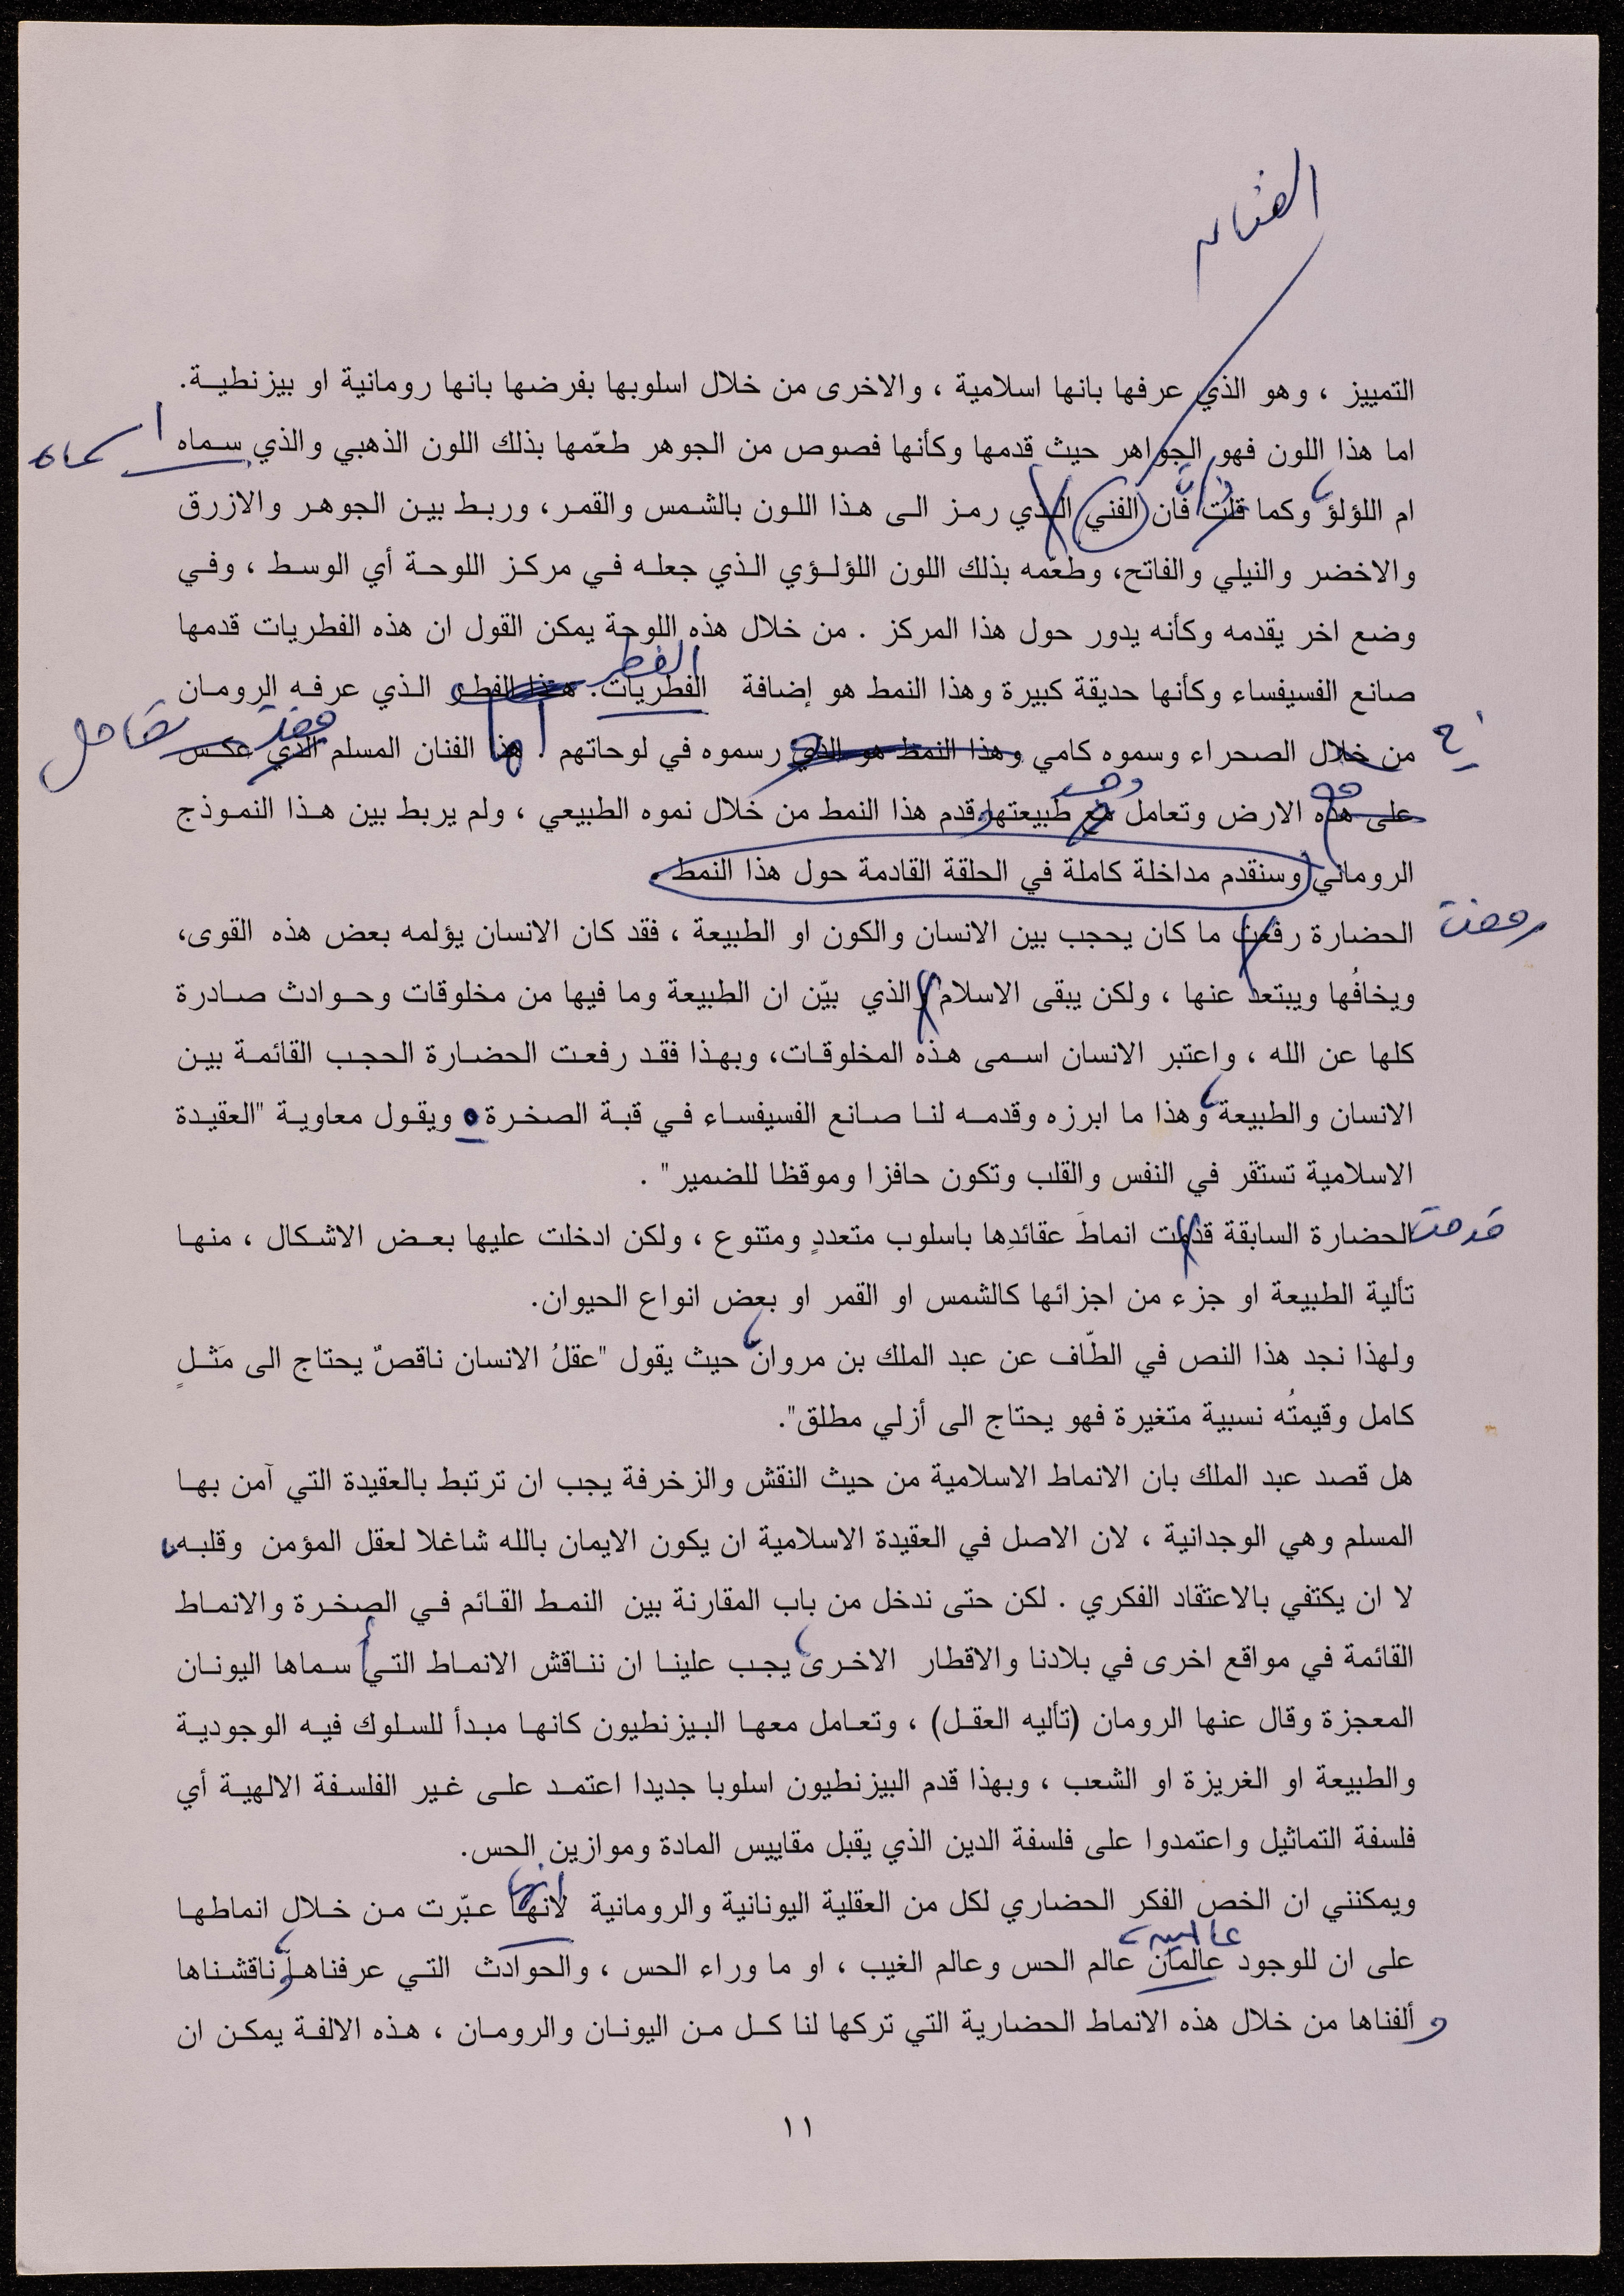 الفنان
التمييز ، وهو الذي عرفها بانها اسلامية ، والاخرى من خلال اسلوبها بفرضها بانها رومانية او بيزنطيــة.
اما هذا اللون فهو الجواهر حيث قدمها وكأنها فصوص من الجوهر طعّمها بذلك اللون الذهبي والذي سـماه
ام اللؤلؤ، وكما قلت فان الفني الذي رمـز الـى هـذا اللـون بالشـمس والقمـر، وربـط بيـن الجوهـر والازرق
والاخضر والنيلي والفاتح، وطعّمه بذلك اللون اللؤلـؤي الـذي جعلـه فـي مركـز اللوحـة أي الوسـط ، وفـي
وضع اخر يقدمه وكأنه يدور حول هذا المركز . من خلال هذه اللوحة يمكن القول ان هذه الفطريات قدمها
الفطر
صانع الفسيفساء وكأنها حديقة كبيرة وهذا النمط هو إضافة الفطريات. هـذا الفطـر الـذي عرفـه الرومـان
من خلال الصحراء وسموه كامي وهذا النمط هو الذي رسموه في لوحاتهم . هذا الفنان المسلم الذي عكـس
على هذه الارض وتعامل مع طبيعتها وقدم هذا النمط من خلال نموه الطبيعي ، ولم يربط بين هـذا النمـوذج
الروماني وسنقدم مداخلة كاملة في الحلقة القادمة حول هذا النمط .
الحضارة رفعت ما كان يحجب بين الانسان والكون او الطبيعة ، فقد كان الانسان يؤلمه بعض هذه القوى،
ويخافُها ويبتعد عنها ، ولكن يبقى الاسلام والذي بيّن ان الطبيعة وما فيها من مخلوقات وحـوادث صـادرة
كلها عن الله ، واعتبر الانسان اسـمى هـذه المخلوقـات، وبهـذا فقـد رفعـت الحضـارة الحجـب القائمـة بيـن
الانسان والطبيعة، وهذا ما ابرزه وقدمــه لنـا صـانع الفسيفسـاء فـي قبـة الصخـرة. ويقـول معاويـة "العقيـدة
الاسلامية تستقر في النفس والقلب وتكون حافزا وموقظا للضمير" .
قدمت
الحضارة السابقة قدمت انماطَ عقائدِها باسلوب متعددٍ ومتنوع ، ولكن ادخلت عليها بعـض الاشـكال ، منهـا
تألية الطبيعة او جزء من اجزائها كالشمس او القمر او بعض انواع الحيوان.
ولهذا نجد هذا النص في الطّاف عن عبد الملك بن مروان، حيث يقول "عقلُ الانسان ناقصٌ يحتاج الى مَثــلٍ
كامل وقيمتُه نسبية متغيرة فهو يحتاج الى أزلي مطلق".
هل قصد عبد الملك بان الانماط الاسلامية من حيث النقش والزخرفة يجب ان ترتبط بالعقيدة التي آمن بهـا
المسلم وهي الوجدانية ، لان الاصل في العقيدة الاسلامية ان يكون الايمان بالله شاغلا لعقل المؤمن وقلبـه،
لا ان يكتفي بالاعتقاد الفكري . لكن حتى ندخل من باب المقارنة بين النمـط القـائم فـي الصخـرة والانمـاط
القائمة في مواقع اخرى في بلادنا والاقطار الاخـرى، يجـب علينـا ان ننـاقش الانمـاط التـي سـماها اليونـان
المعجزة وقال عنها الرومان (تأليه العقـل) ، وتعـامل معهـا البـيزنطيون كانهـا مبـدأ للسـلوك فيـه الوجوديـة
والطبيعة او الغريزة او الشعب ، وبهذا قدم البيزنطيون اسلوبا جديدا اعتمـد علـى غـير الفلسـفة الالهيـة أي
فلسفة التماثيل واعتمدوا على فلسفة الدين الذي يقبل مقاييس المادة وموازين الحس.
انها
ويمكنني ان الخص الفكر الحضاري لكل من العقلية اليونانية والرومانية لانهـا عـبّرت مـن خـلال انماطهـا
عالمين
على ان للوجود عالمان عالم الحس وعالم الغيب ، او ما وراء الحس ، والحوادث التـي عرفناهـا، وناقشـناها
و ألفناها من خلال هذه الانماط الحضارية التي تركها لنا كـل مـن اليونـان والرومـان ، هـذه الالفـة يمكـن ان
١١